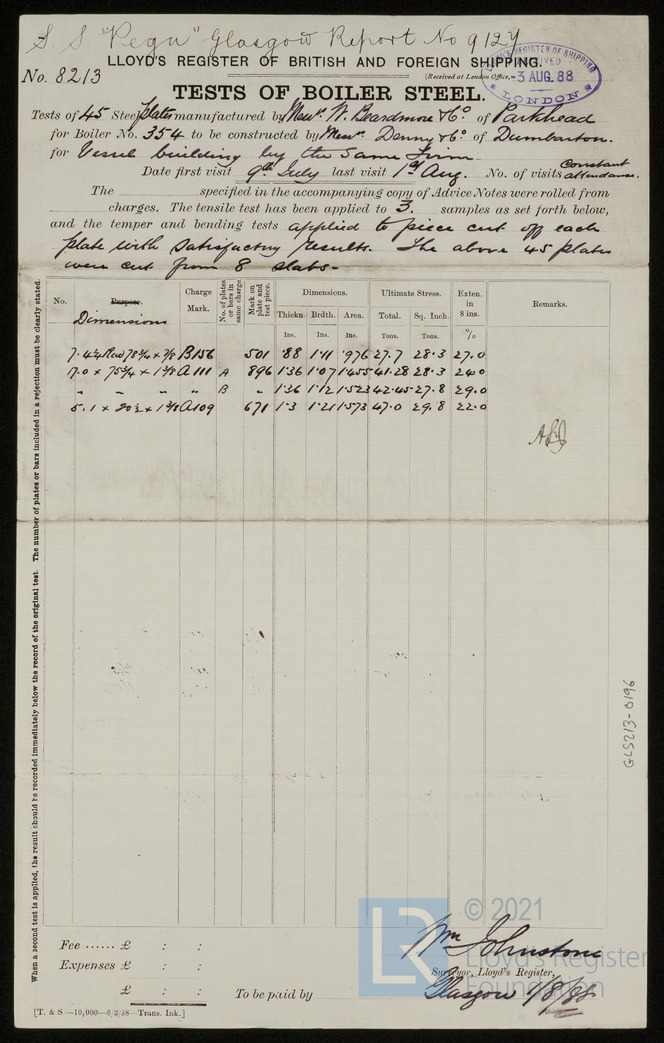 S. S. "Pegu" Glasgow Report No 9124
LLOYD'S REGISTER OF BRITISH AND FOREIGN SHIPPING.
No. 8213
(Received at London Office,
LLOYD'S REGISTER OF SHIPPING
RECEIVED
-3 AUG. 88
LONDON
TESTS OF BOILER STEEL.
Tests of 45 Steel plates manufactured by Messrs. W. Beardmore & Co. of Parkhead
for Boiler No. 354 to be constructed by Messrs. Denny & Co. of Dumbarton.
for Vessel building by the same Firm
Date first visit 9th July last visit 1st Aug. No. of visits Constant attendance.
The specified in the accompanying copy of Advice Notes were rolled from
charges. The tensile test has been applied to 3. samples as set forth below,
and the temper and bending tests applied to piece cut off each
plate with satisfactory results. The above 45 plates
were cut from 8 slabs-
No. Purpose. Dimensions Charge Mark. No. of plates or bars in same charge Mark on plate and test piece. Dimensions. Ultimate Stress. Exten. in 8 ins. Remarks.
Thickn. Brdth. Area. Total. Sq. Inch.
Ins. Ins. Ins. Tons. Tons. %
7.4¼ 78¾ × ⅞ B156 501 .88 1.11 .976 27.7 28.3 27.0
17.0 × 75¾ × 1⅜ A111 A 896 1.36 1.07 1.455 41.28 28.3 24.0
" " " " B " 1.36 1.12 1.523 42.45 27.8 29.0
5.1 × 20½ × 1⅜ A109 671 1.3 1.21 1.573 47.0 29.8 22.0
When a second test is applied, the result should be recorded immediately below the record of the original test. The number of plates or bars included in a rejection must be clearly stated.
GLS213-0196
Fee ...... £ : :
Expenses £ : :
£ : :
To be paid by
Wm Johnstone
Surveyor, Lloyd's Register,
Glasgow 1/8/88
[T. & S.—10,000—6/3/88—Trans. Ink.]
LR
© 2021
Lloyd's Register
Foundation